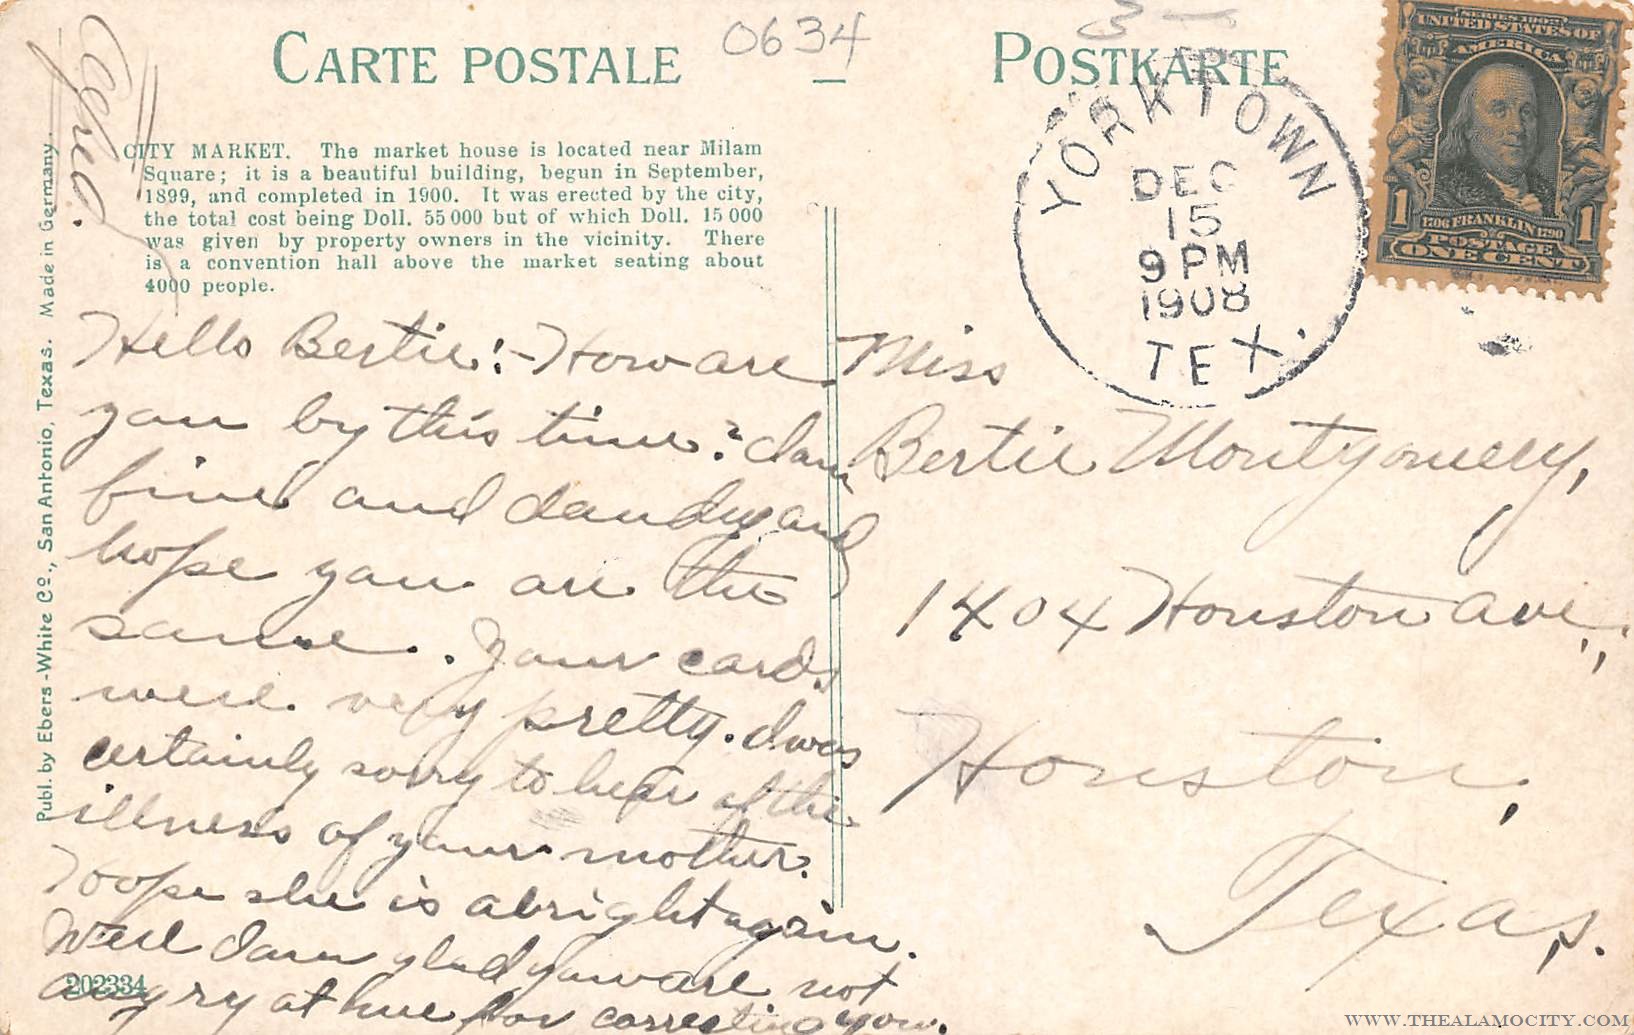 CARTE POSTALE
0634
3 —
POSTKARTE
SERIES 1902
UNITED STATES OF
AMERICA
1 1706 FRANKLIN 1790 1
POSTAGE
ONE CENT
YORKTOWN
DEC
15
9 PM
1908
TEX.
CITY MARKET. The market house is located near Milam
Square; it is a beautiful building, begun in September,
1899, and completed in 1900. It was erected by the city,
the total cost being Doll. 55 000 but of which Doll. 15 000
was given by property owners in the vicinity. There
is a convention hall above the market seating about
4000 people.
Publ. by Ebers-White Co., San Antonio, Texas. Made in Germany.
Hello Bertie!- How are
you by this time? I am
fine and dandy and
hope you are the
same. Your cards
were very pretty. I was
certainly sorry to hear of the
illness of your mother.
Hope she is alright again.
Well I am glad you are not
angry at me for correcting you.
202334
Miss
Bertie Montgomery,
1404 Houston Ave.,
Houston,
Texas.
WWW.THEALAMOCITY.COM